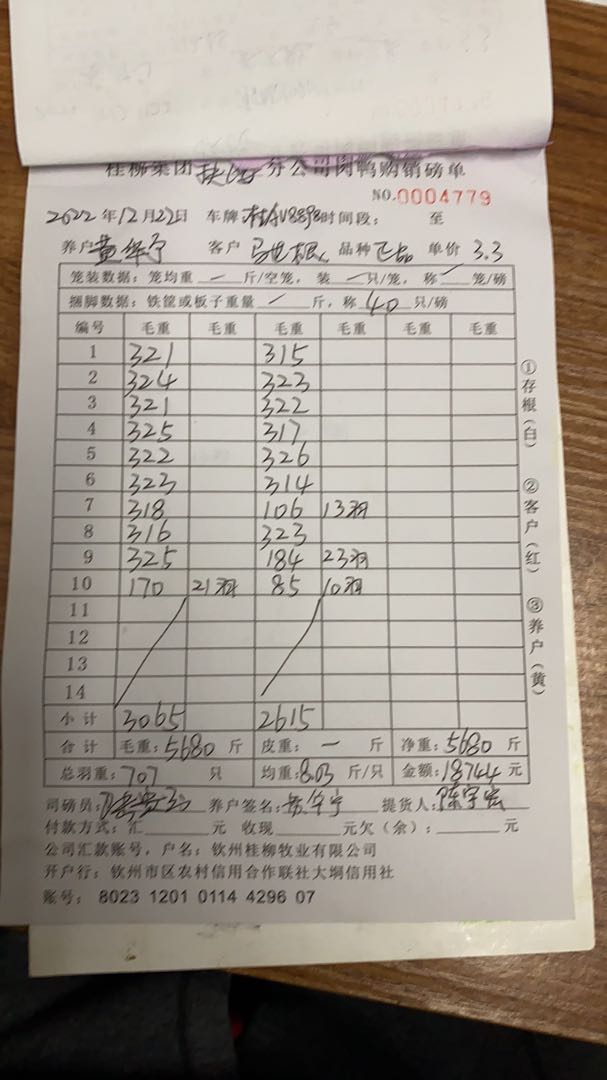 桂柳集团 分公司肉鸭购销磅单
NO.0004779
2022年12月22日 车牌 时间段: 至
养户 黄华宁 客户 品种 单价 3.3
笼装数据:笼均重 一 斤/空笼,装 一 只/笼,称 一 笼/磅
捆脚数据:铁筐或板子重量 一 斤,称 40 只/磅
编号 毛重 毛重 毛重 毛重 毛重 毛重
1 321 315
2 324 323
3 321 322
4 325 317
5 322 326
6 323 314
7 318 106 13羽
8 316 323
9 325 184 23羽
10 170 21羽 85 10羽
11
12
13
14
小计 3065 2615
合计 毛重:5680 斤 皮重: 一 斤 净重:5680 斤
总羽重:707 只 均重:8.03 斤/只 金额:18744 元
司磅员: 养户签名:黄华宁 提货人:陈宇宏
付款方式:汇 元 收现 元欠(余): 元
公司汇款账号,户名:钦州桂柳牧业有限公司
开户行:钦州市区农村信用合作联社大垌信用社
账号:8023 1201 0114 4296 07
①存根(白)
②客户(红)
③养户(黄)